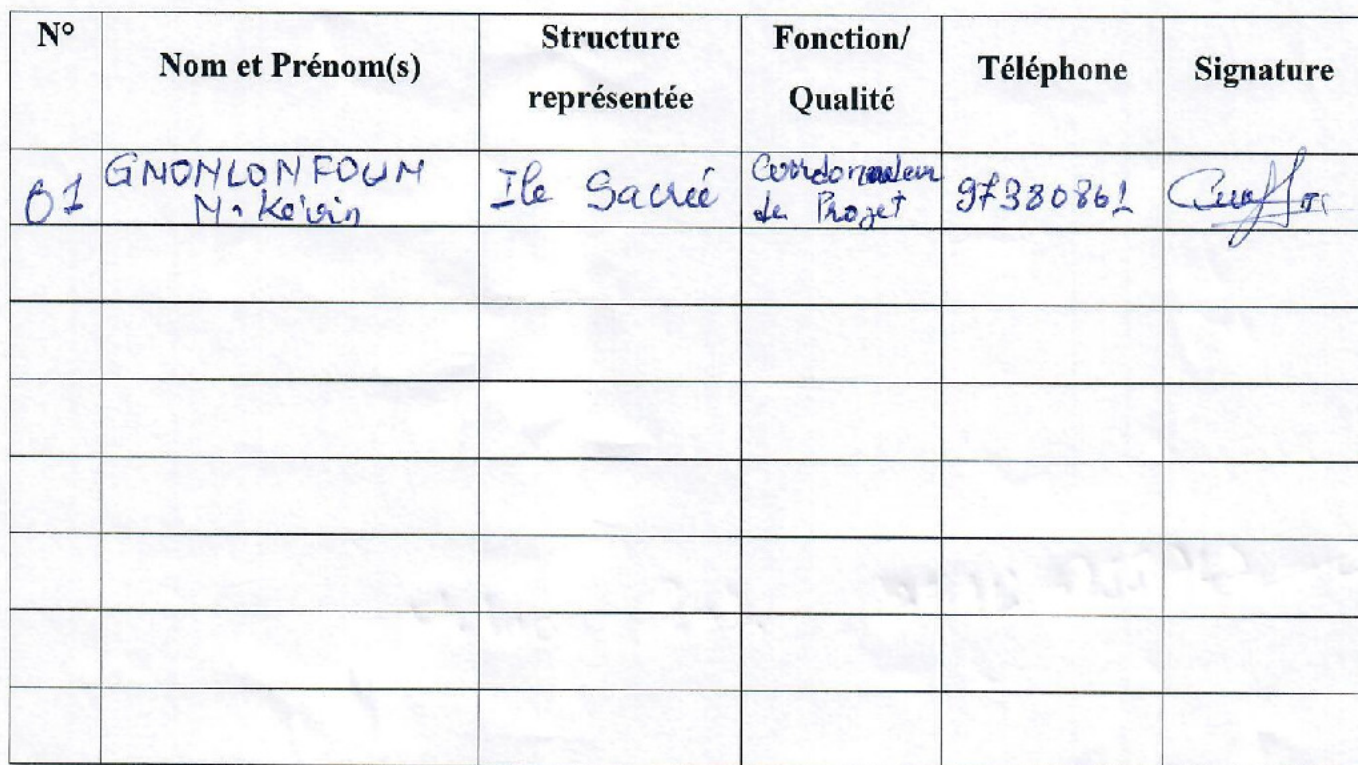 N° Nom et Prénom(s) Structure représentée Fonction/ Qualité Téléphone Signature
01 GNONLONFOUN M. Kévin Ile Sacréé Coordonnateur de Projet 97380861